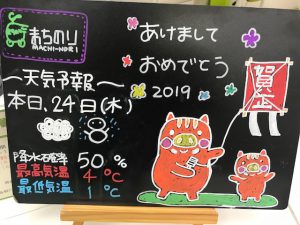 まちのり
MACHI-NORI
あけまして
おめでとう
2019
〜天気予報〜
本日,24日(木)
降水確率 50 %
最高気温 4 ℃
最低気温 1 ℃
賀正